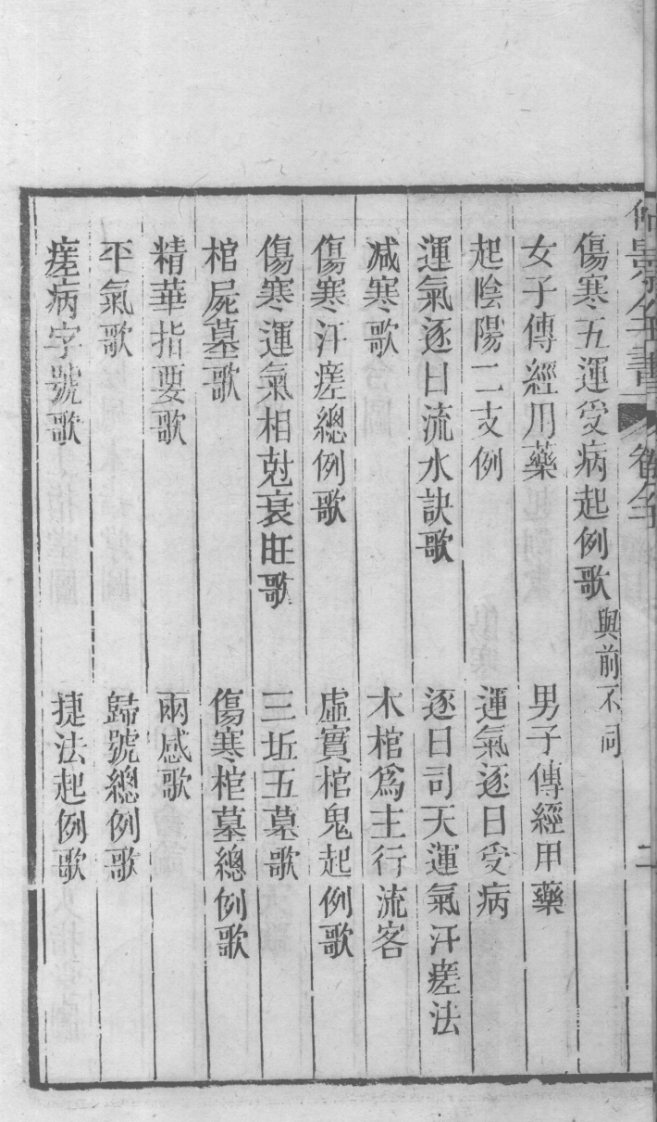 傷寒五運受病起例歌與前不同
女子傳經用藥　男子傳經用藥
起陰陽二支例　運氣逐日受病
運氣逐日流水訣歌　逐日司天運氣汗瘥法
减寒歌　木棺爲主行流客
傷寒汗瘥總例歌　虛實棺鬼起例歌
傷寒運氣相尅衰旺歌　三坵五墓歌
棺屍墓歌　傷寒棺墓總例歌
精華指要歌　兩感歌
平氣歌　歸號總例歌
瘥病字號歌　捷法起例歌